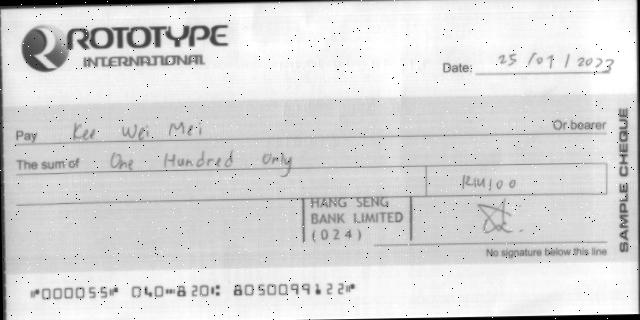 ROTOTYPE
INTERNATIONAL
Date: 25/07/2023
Pay Kee Wei Mei Or bearer
The sum of One Hundred Only
RM100
HANG SENG
BANK LIMITED
(024)
No signature below this line
SAMPLE CHEQUE
⑈000055⑈ 040⑉820⑆ 8050099122⑈